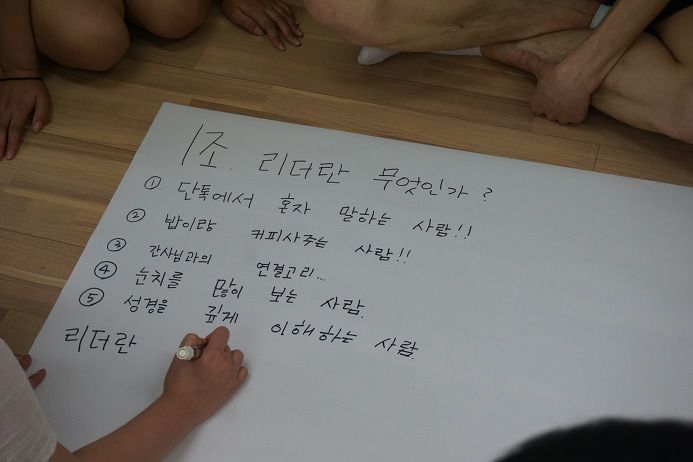 1조. 리더란 무엇인가?
① 단톡에서 혼자 말하는 사람!!
② 밥이랑 커피사주는 사람!!
③ 간사님과의 연결고리...
④ 눈치를 많이 보는 사람.
⑤ 성경을 깊게 이해하는 사람.
리더란